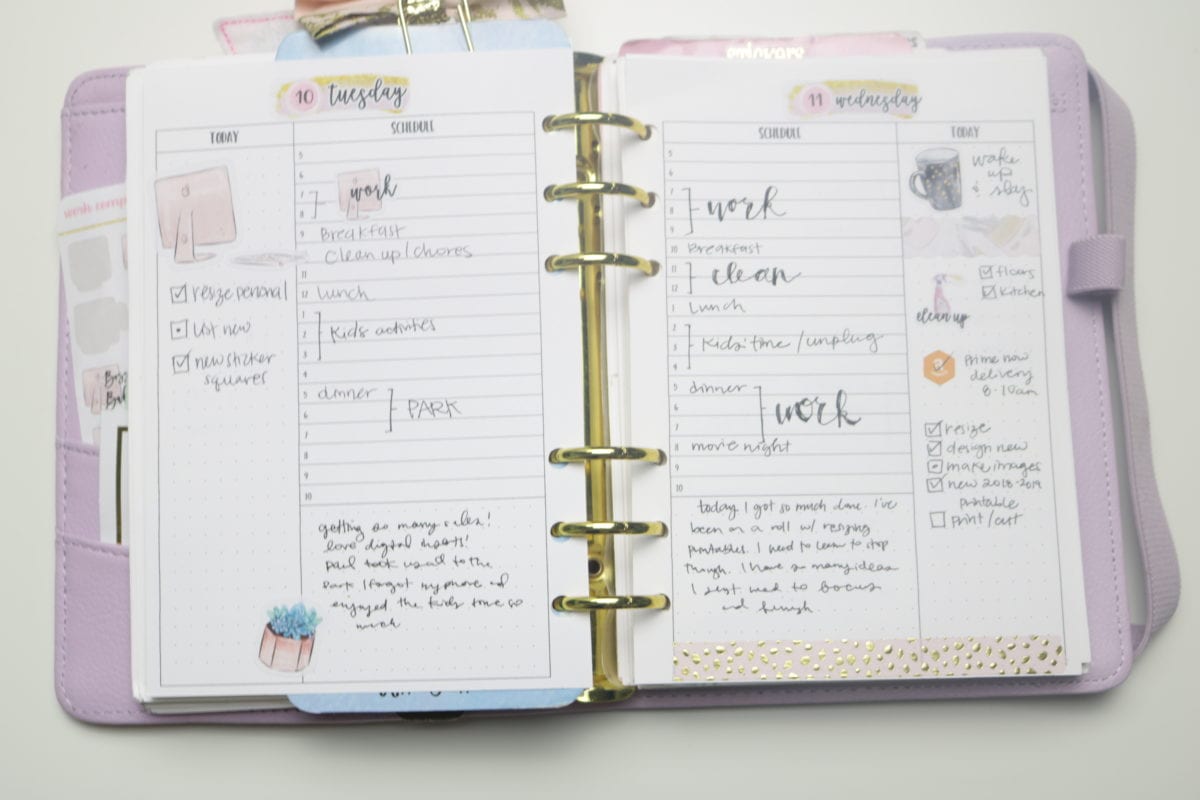 work comp
erlovers
10 tuesday
TODAY
SCHEDULE
5
6
7
work
8
9 Breakfast
Clean up / chores
11
12 Lunch
1
2 Kids activities
3
4
5 dinner
6 PARK
7
8
9
10
resize personal
List new
new sticker
squares
getting so many sales!
love digital
Paul took us all to the
Park I forgot my phone and
enjoyed the kids time so
much
11 wednesday
SCHEDULE
TODAY
5
6
7
8 work
9
10 Breakfast
11 clean
12
1 Lunch
2
3 Kids time / unplug
4
5 dinner
6 work
7
8 movie night
9
10
today I got so much done. I've
been on a roll w/ resizing
printables. I need to learn to stop
though. I have so many ideas
I just need to focus
and finish
wake
up
& slay
floors
kitchen
clean up
Prime now
delivery
8-10am
resize
design new
make images
new 2018-2019
printable
print / cut